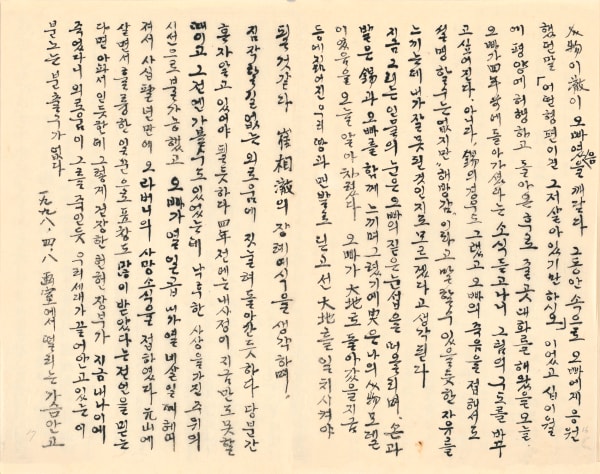 人物이 澈이 오빠였음을 깨달다 그동안 속으로 오빠에게 응원
했던말 「어떤형편이건 그저살아있기만하길」이었고 십이월
에 평양에 여행하고 돌아온 후로 줄곳 대화를 해왔을 오늘
오빠가 四年 前에 돌아가셨다는 소식듣고나니 그림의 구도를 바꾸
고 싶어진다. 아니다 錫의 경우도 그랬고 오빠의 죽음을 접해서도
설명할수는 없지만 "해방감"이라고 말할수 있을듯한 자유를
느끼는데 내가 잘못된것인지도 모르겠다고 생각된다
지금 그리는 인물의 눈은 오빠의 짙은 눈섭을 떠올리며, 손과
발은 錫과 오빠를 함께 느끼며 그렸기에 나의 人物 모델은
이였음을 오늘 알아차렸다. 오빠가 大地로 돌아갔을지금
등에 짊어진 우리 땅과 맨발로 딛고선 大地를 일치시켜야
될것같다. 崔相澈의 장례예식을 생각하며.
짐작할길없는 외로움에 짓눌려 돌아간듯하다 당분간
혼자알고 있어야 될듯하다 四年전에는 내사정이 지금만도 못할
때이고 그전엔 가볼수도 있었는데 낙후한 사상을 가진 주위의
시선으로 불가능했고 오빠가 열일곱 내가 열네살일때 헤여
져서 사십팔년만에 오라버니의 사망소식을 접하였다. 元山에
살면서 훌륭한 일꾼으로 표창도 많이 받았다는 전언을 믿는
다면 아파서인듯한데 그렇게 건장한 헌헌장부가 지금 내나이에
죽었다니 외로움이 그를 죽인듯 우리세대가 끌어안고 있는 이
분노는 분출구가 없다 一九九八.四.八 画室에서 떨리는 가슴안고